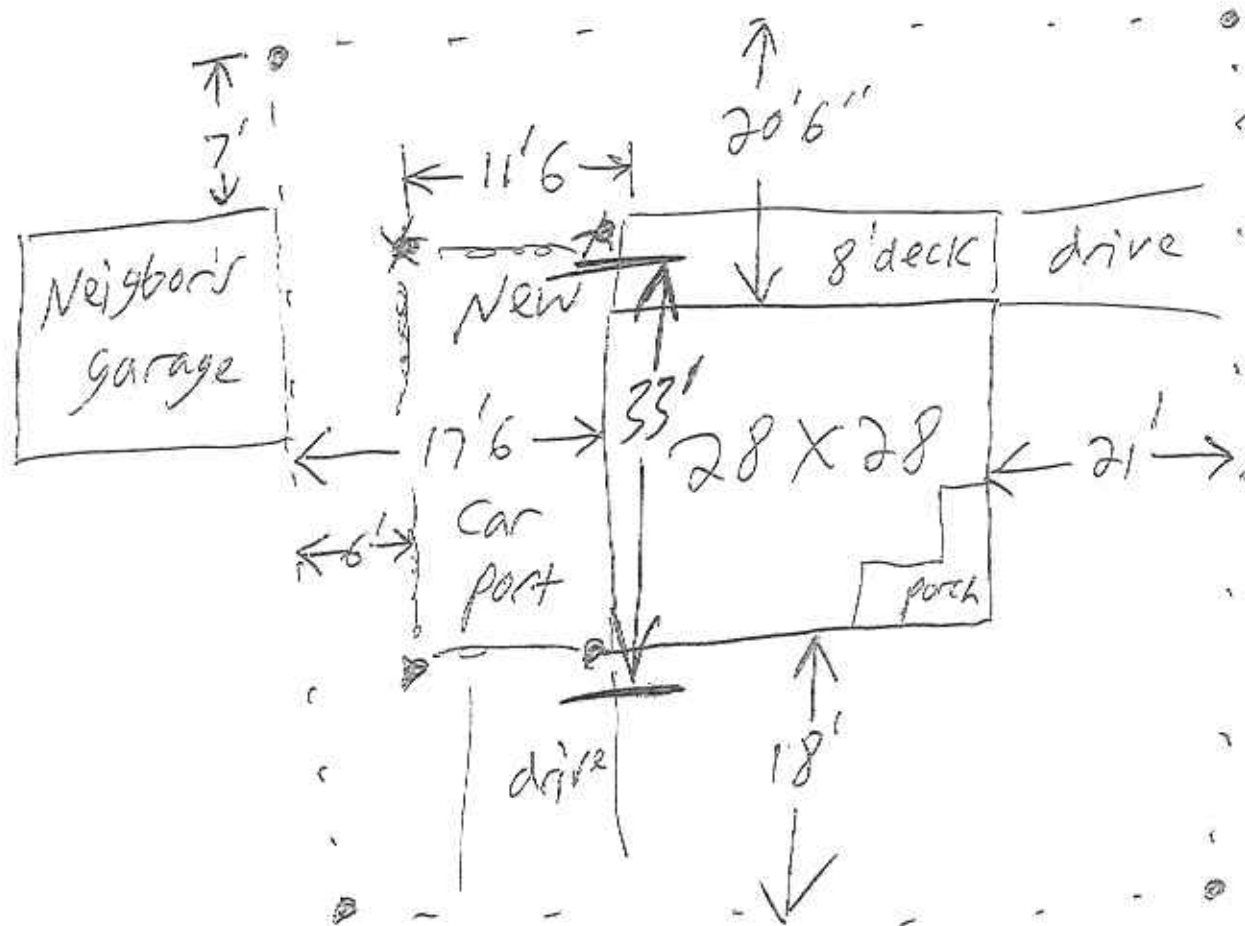 7'
20'6"
11'6
Neigbor's
garage
New
8'deck
drive
17'6
33'
28 X 28
21'
6'
Car
port
porch
drive
18'